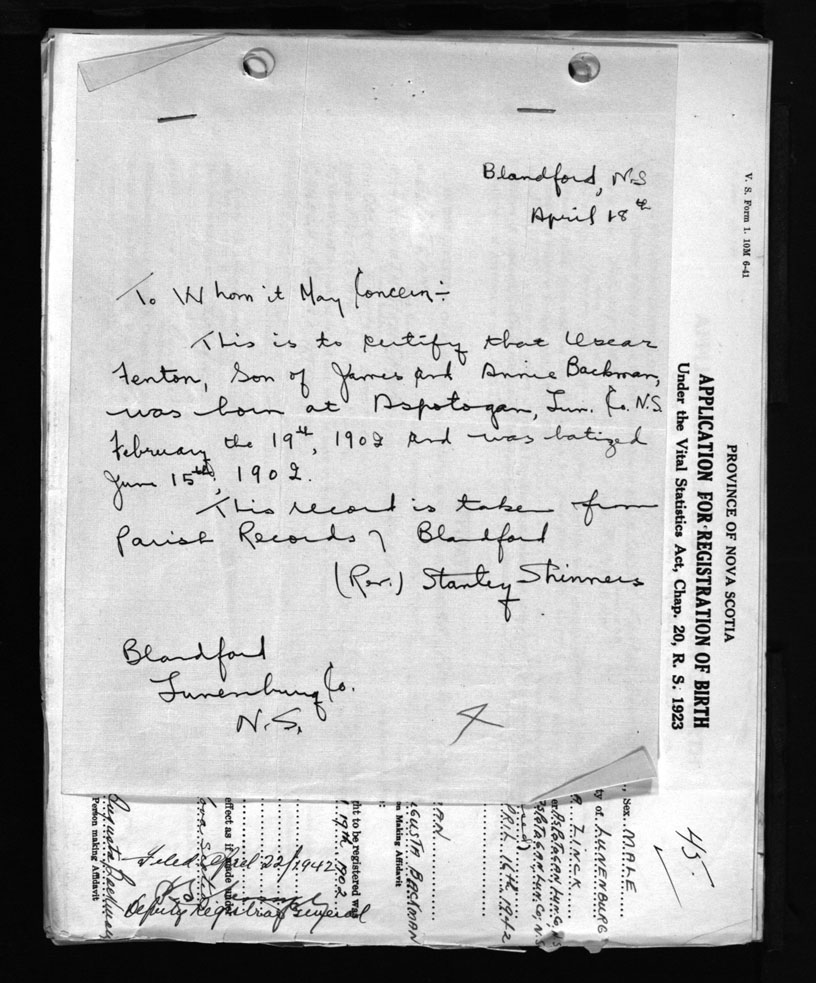 Blandford, N.S
April 18th
To Whom it May Concern:-
This is to certify that Oscar
Fenton, Son of James and Annie Backman,
was born at Aspotogan, Lun. Co. N.S.
February the 19th, 1902 and was batized
June 15th, 1902.
This record is taken from
Parish Records of Blandford
(Rev.) Stanley Shinners
Blandford
Lunenburg Co.
N.S.
V. S. Form 1. 10M 6-41
PROVINCE OF NOVA SCOTIA
APPLICATION FOR REGISTRATION OF BIRTH
Under the Vital Statistics Act, Chap. 20, R. S. 1923
45.
Sex. MALE
ty of LUNENBURG
ZINCK
ASPOTAGAN, LUN. Co, N.S
ASPOTAGAN, LUN. Co, N.S
PRIL 16th 1942
GUSTA BACKMAN
on Making Affidavit
ht to be registered was
19th 1902
effect as if made under
Augusta Backman
Person making Affidavit
Filed April 22/1942
Deputy Registrar General